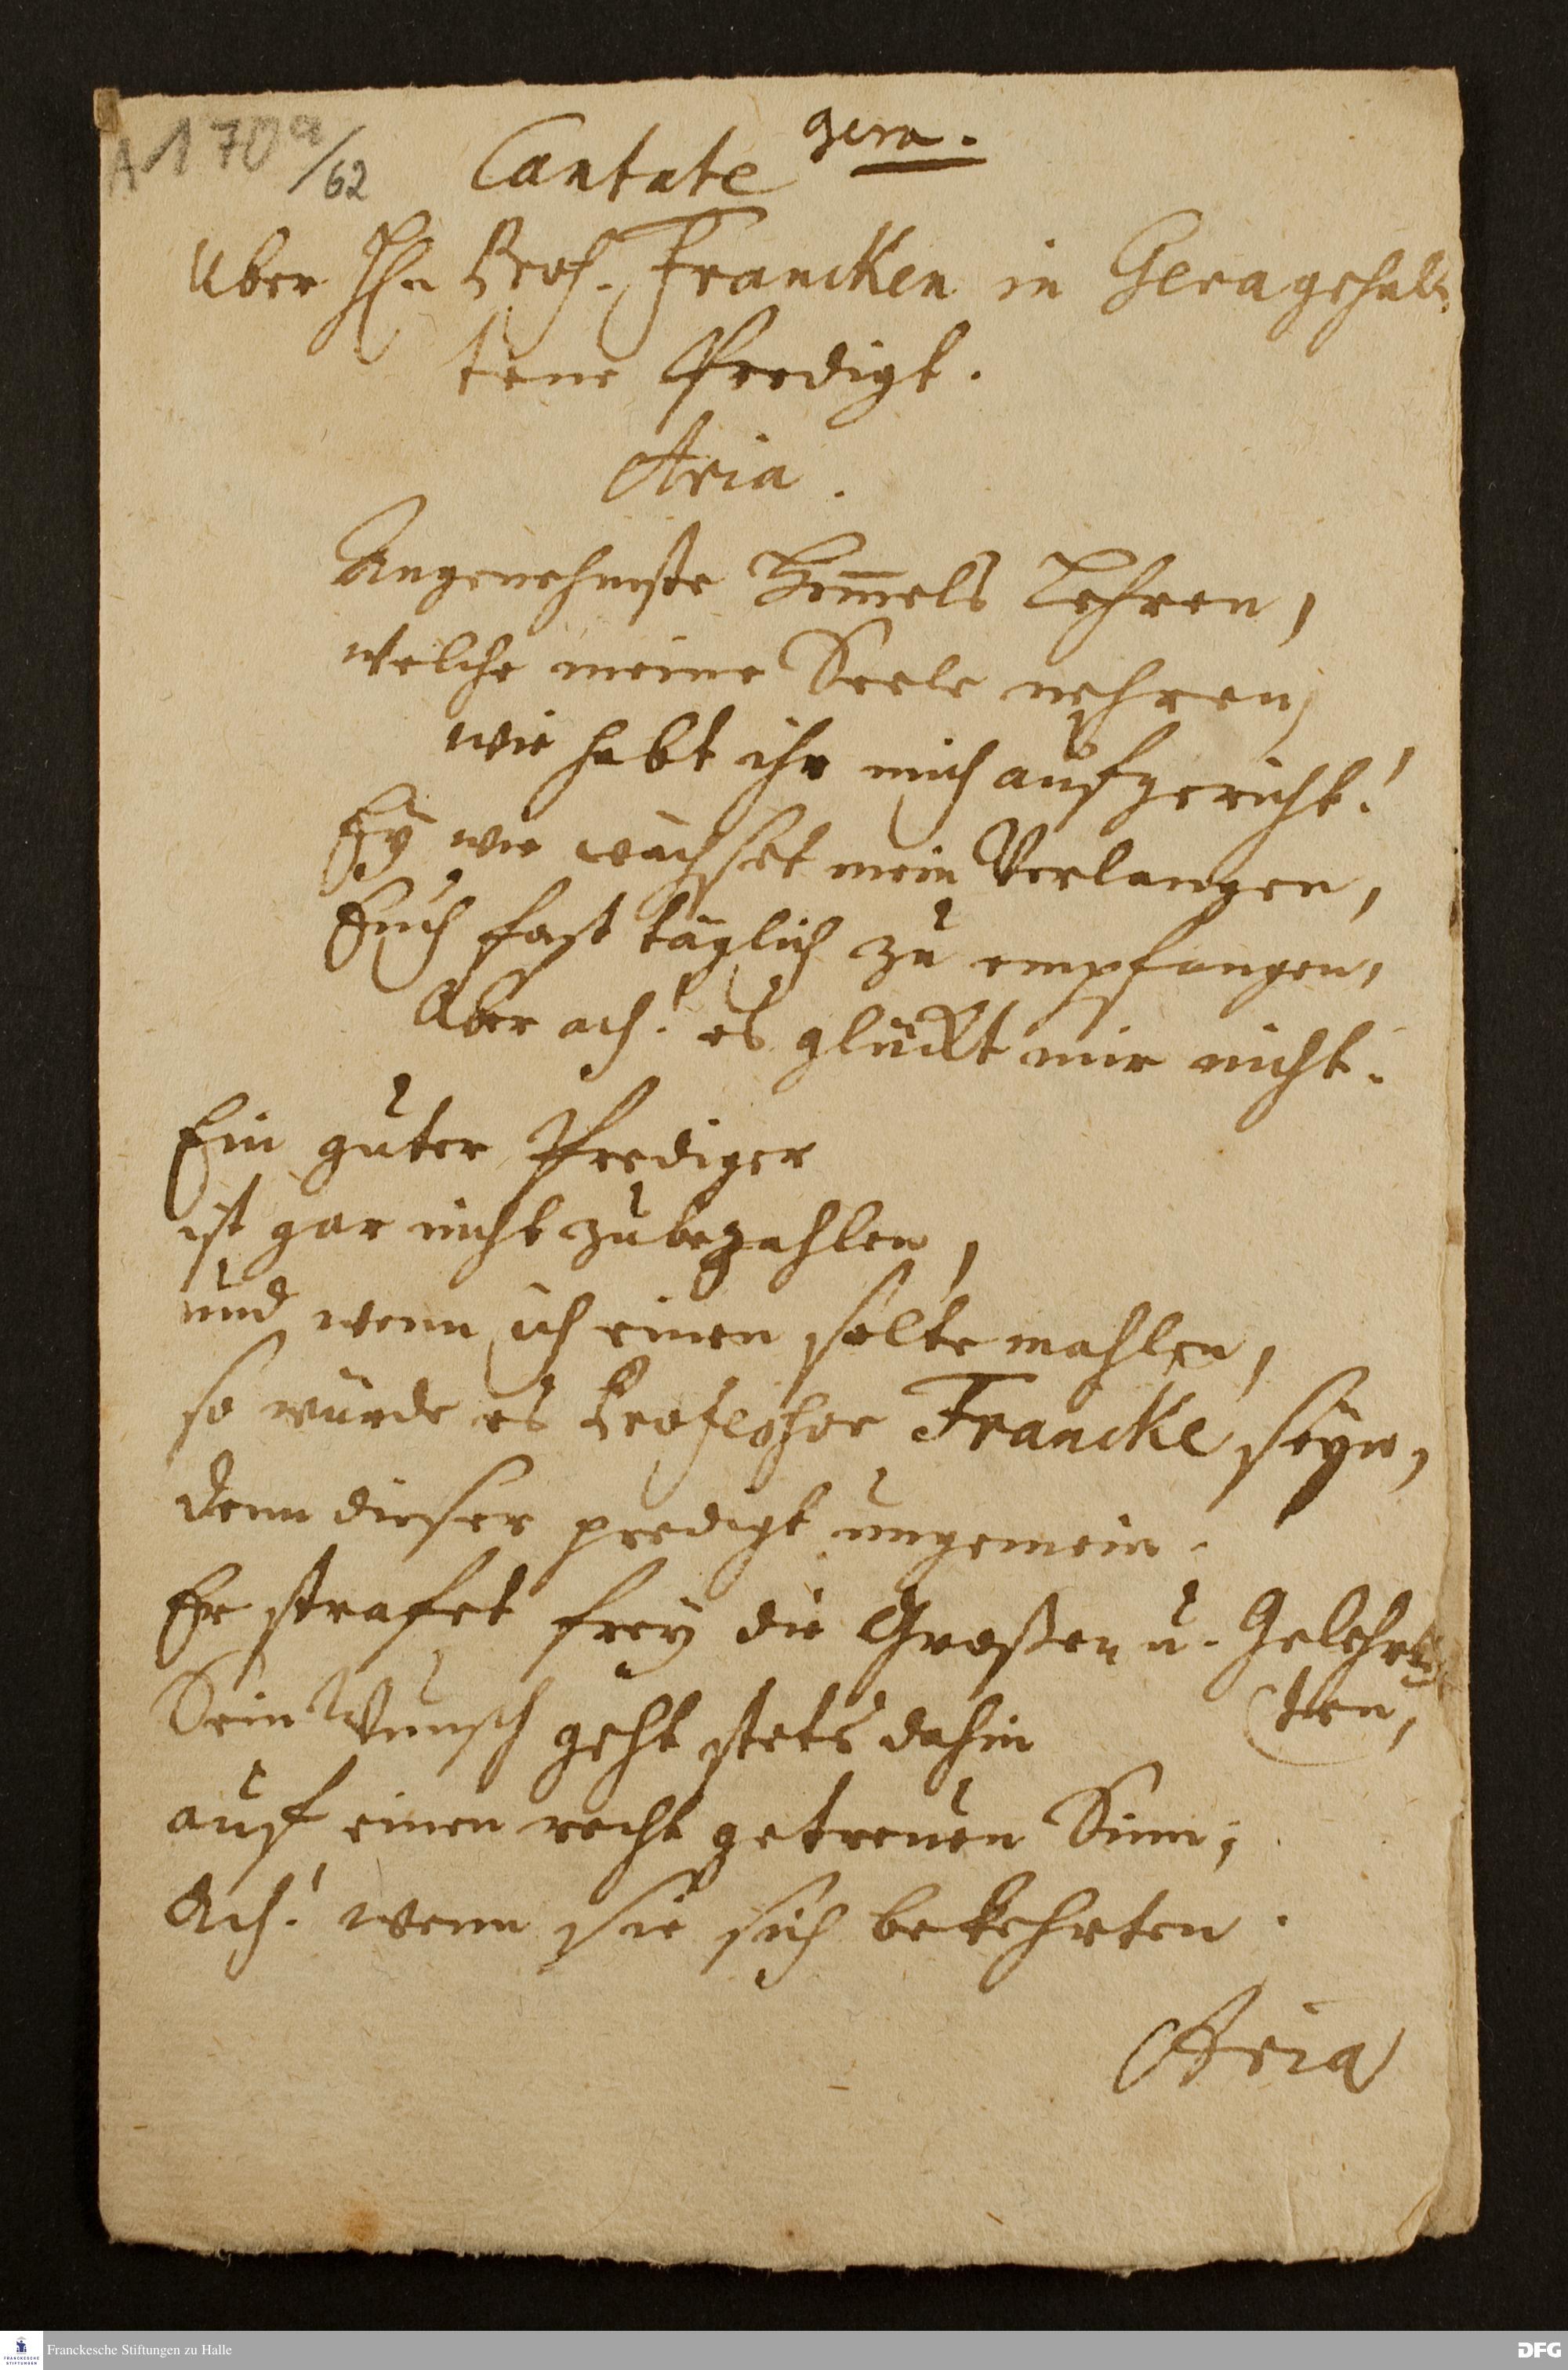 A 170a/62
gera.
Cantate
Uber Hn Prof. Francken in Gera gehal-
tene Predigt.
Aria.
Angenehmste Him̅els Lehren,
welche meine Seele nehren,
wie habt ihr mich aufgericht!
Ey wie wächset mein Verlangen,
Euch fast täglich zu empfangen,
Aber ach! es glückt mir nicht.
Ein guter Prediger
ist gar nicht zubezahlen,
und wenn ich einen solte mahlen,
so würde es Professor Francke seyn,
denn dieser predigt ungemein.
Er strafet frey die Großen u. Gelehr-
(ten,
Sein Wunsch geht stets dahin
auf einen recht getreuen Sinn;
Ach! wenn sie sich bekehrten.
Aria
Franckesche Stiftungen zu Halle
FRANCKESCHE STIFTUNGEN
DFG